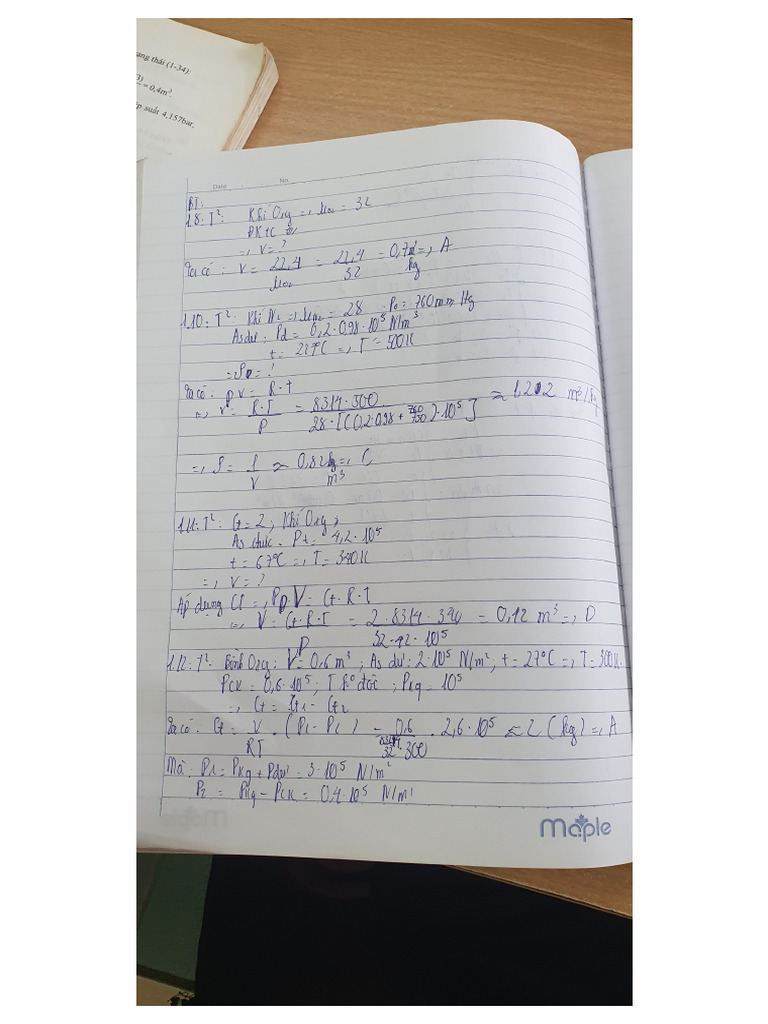 ạng thái (1-34):
3) = 0,4m³.
áp suất 4,157bar.
Date No.
BT:
1.8: T²: Khí Oxy =, μO2 = 32
ĐKTC
=, v = ?
Ta có: v = 22,4/μO2 = 22,4/32 = 0,7 m³/kg =, A
1.10: T²: Khí N2 =, μN2 = 28 P0 = 760 mm Hg
As dư: Pd = 0,2·0,98·10⁵ N/m³
t = 27°C =, T = 300K
= ρ = ?
Ta có: pv = R·t
=, v = R·T/P = 8314·300/28·[(0,2·0,98 + 760/750)·10⁵] ≈ 1,202 m³/kg
=, ρ = 1/V ≈ 0,82 kg/m³ =, C
1.11: T²: G = 2; Khí Oxy;
As thực: Pt = 4,2·10⁵
t = 67°C =, T = 340K
=, V = ?
Áp dụng CT =, P·V = G·R·T
=, V = G·R·T/P = 2·8314·340/32·42·10⁵ = 0,42 m³ =, D
1.12: T²: Bình Oxy: V = 0,6 m³; As dư: 2·10⁵ N/m²; t = 27°C =, T = 300K.
PCK = 0,6·10⁵; T k° đổi; Pkq = 10⁵
=, G = G1 - G2
Ta có: G = V/RT · (P1 - P2) = 0,6/8314/32·300 · 2,6·10⁵ ≈ 2 (kg) =, A
Mà: P1 = Pkq + Pdư = 3·10⁵ N/m²
P2 = Pkq - PCK = 0,4·10⁵ N/m²
Maple